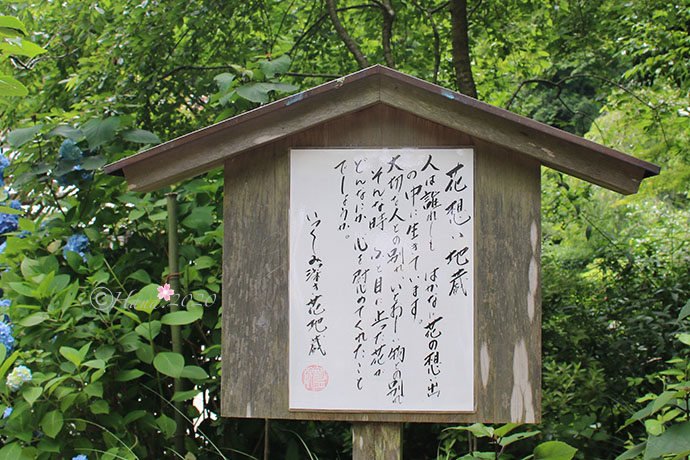 花想い地蔵
人は誰れしも はかない花の想い出
の中に生きています。
大切な人との別れ いとおしい物との別れ
そんな時 ふと目に止った花が
どんなにか 心を慰めてくれたこと
でしょうか。
いつくしみ深き花地蔵
2020